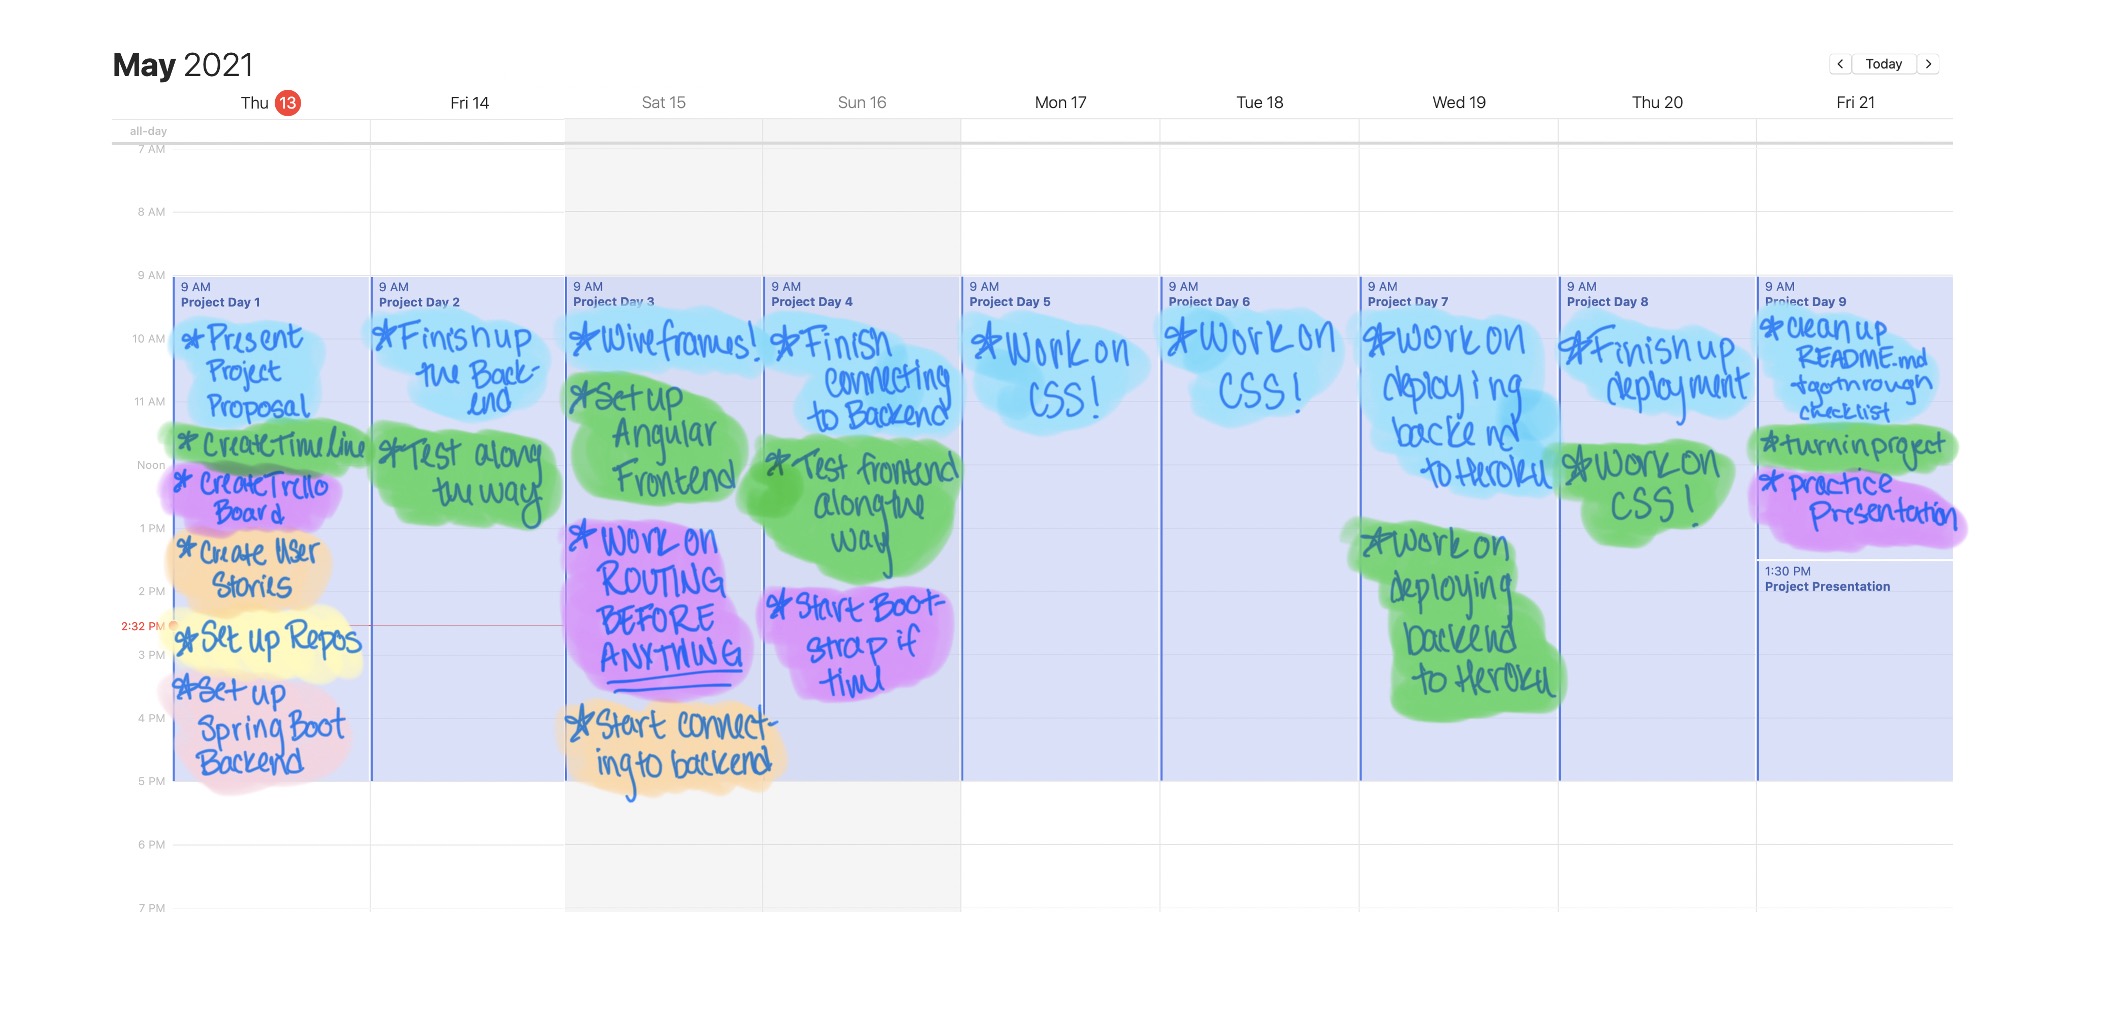 May 2021
< Today >
Thu 13
Fri 14
Sat 15
Sun 16
Mon 17
Tue 18
Wed 19
Thu 20
Fri 21
all-day
7 AM
8 AM
9 AM
10 AM
11 AM
Noon
1 PM
2 PM
2:32 PM
3 PM
4 PM
5 PM
6 PM
7 PM
9 AM
Project Day 1
* Present
Project
Proposal
* Create Timeline
* Create Trello
Board
* Create User
Stories
* Set up Repos
* Set up
Spring Boot
Backend
9 AM
Project Day 2
* Finish up
the Back-
end
* Test along
the way
9 AM
Project Day 3
* Wireframes!
* Set up
Angular
Frontend
* Work on
ROUTING
BEFORE
ANYTHING
* Start connect-
ing to backend
9 AM
Project Day 4
* Finish
connecting
to Backend
* Test frontend
along the
way
* Start Boot-
strap if
time
9 AM
Project Day 5
* Work on
CSS!
9 AM
Project Day 6
* Work on
CSS!
9 AM
Project Day 7
* Work on
deploying
backend
to Heroku
* Work on
deploying
backend
to Heroku
9 AM
Project Day 8
* Finish up
deployment
* Work on
CSS!
9 AM
Project Day 9
* clean up
README.md
+ go through
checklist
* turn in project
* practice
Presentation
1:30 PM
Project Presentation